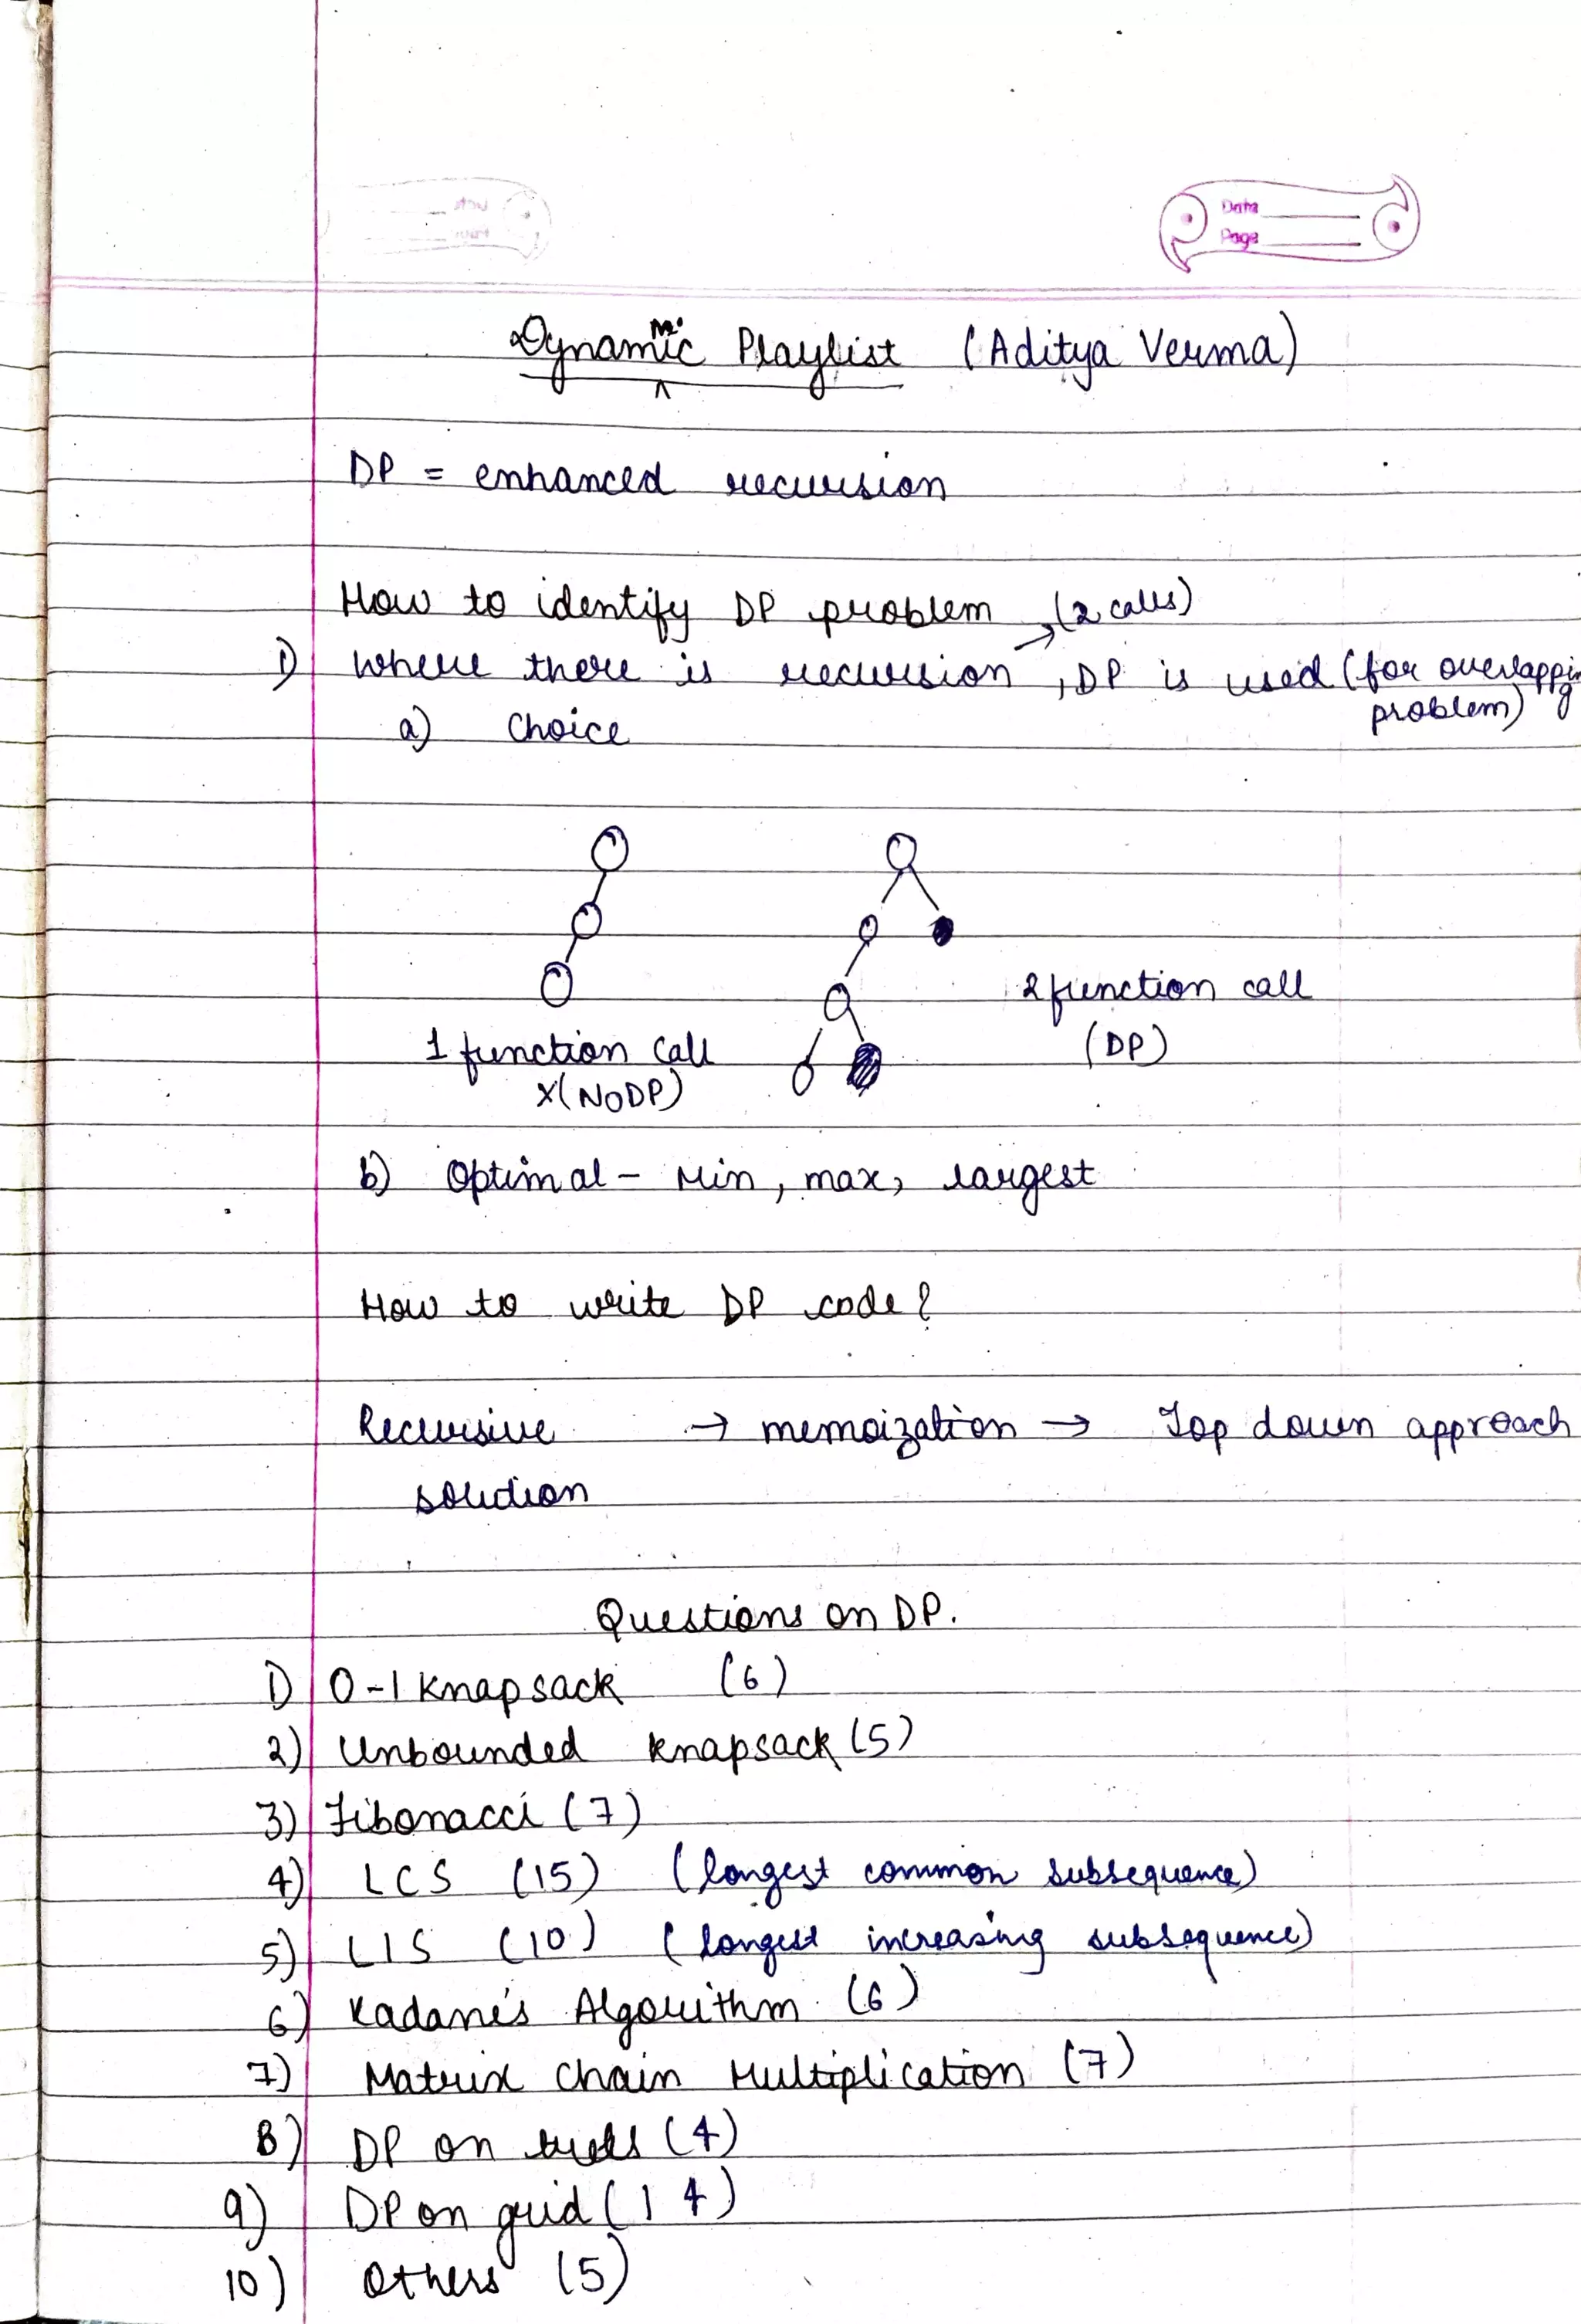 Date
Page
Dynamic Playlist (Aditya Verma)
DP = enhanced recursion
How to identify DP problem
→ (2 calls)
1) Where there is recursion, DP is used (for overlapping
problem)
a) Choice
2 function call
1 function call
(DP)
X(NO DP)
b) Optimal - Min, max, largest
How to write DP code?
Recursive → memoization → Top down approach
solution
Questions on DP.
1) 0-1 Knapsack (6)
2) Unbounded knapsack (5)
3) Fibonacci (7)
4) LCS (15) (longest common subsequence)
5) LIS (10) (longest increasing subsequence)
6) Kadane's Algorithm (6)
7) Matrix Chain Multiplication (7)
8) DP on trees (4)
9) DP on grid (14)
10) Others (5)